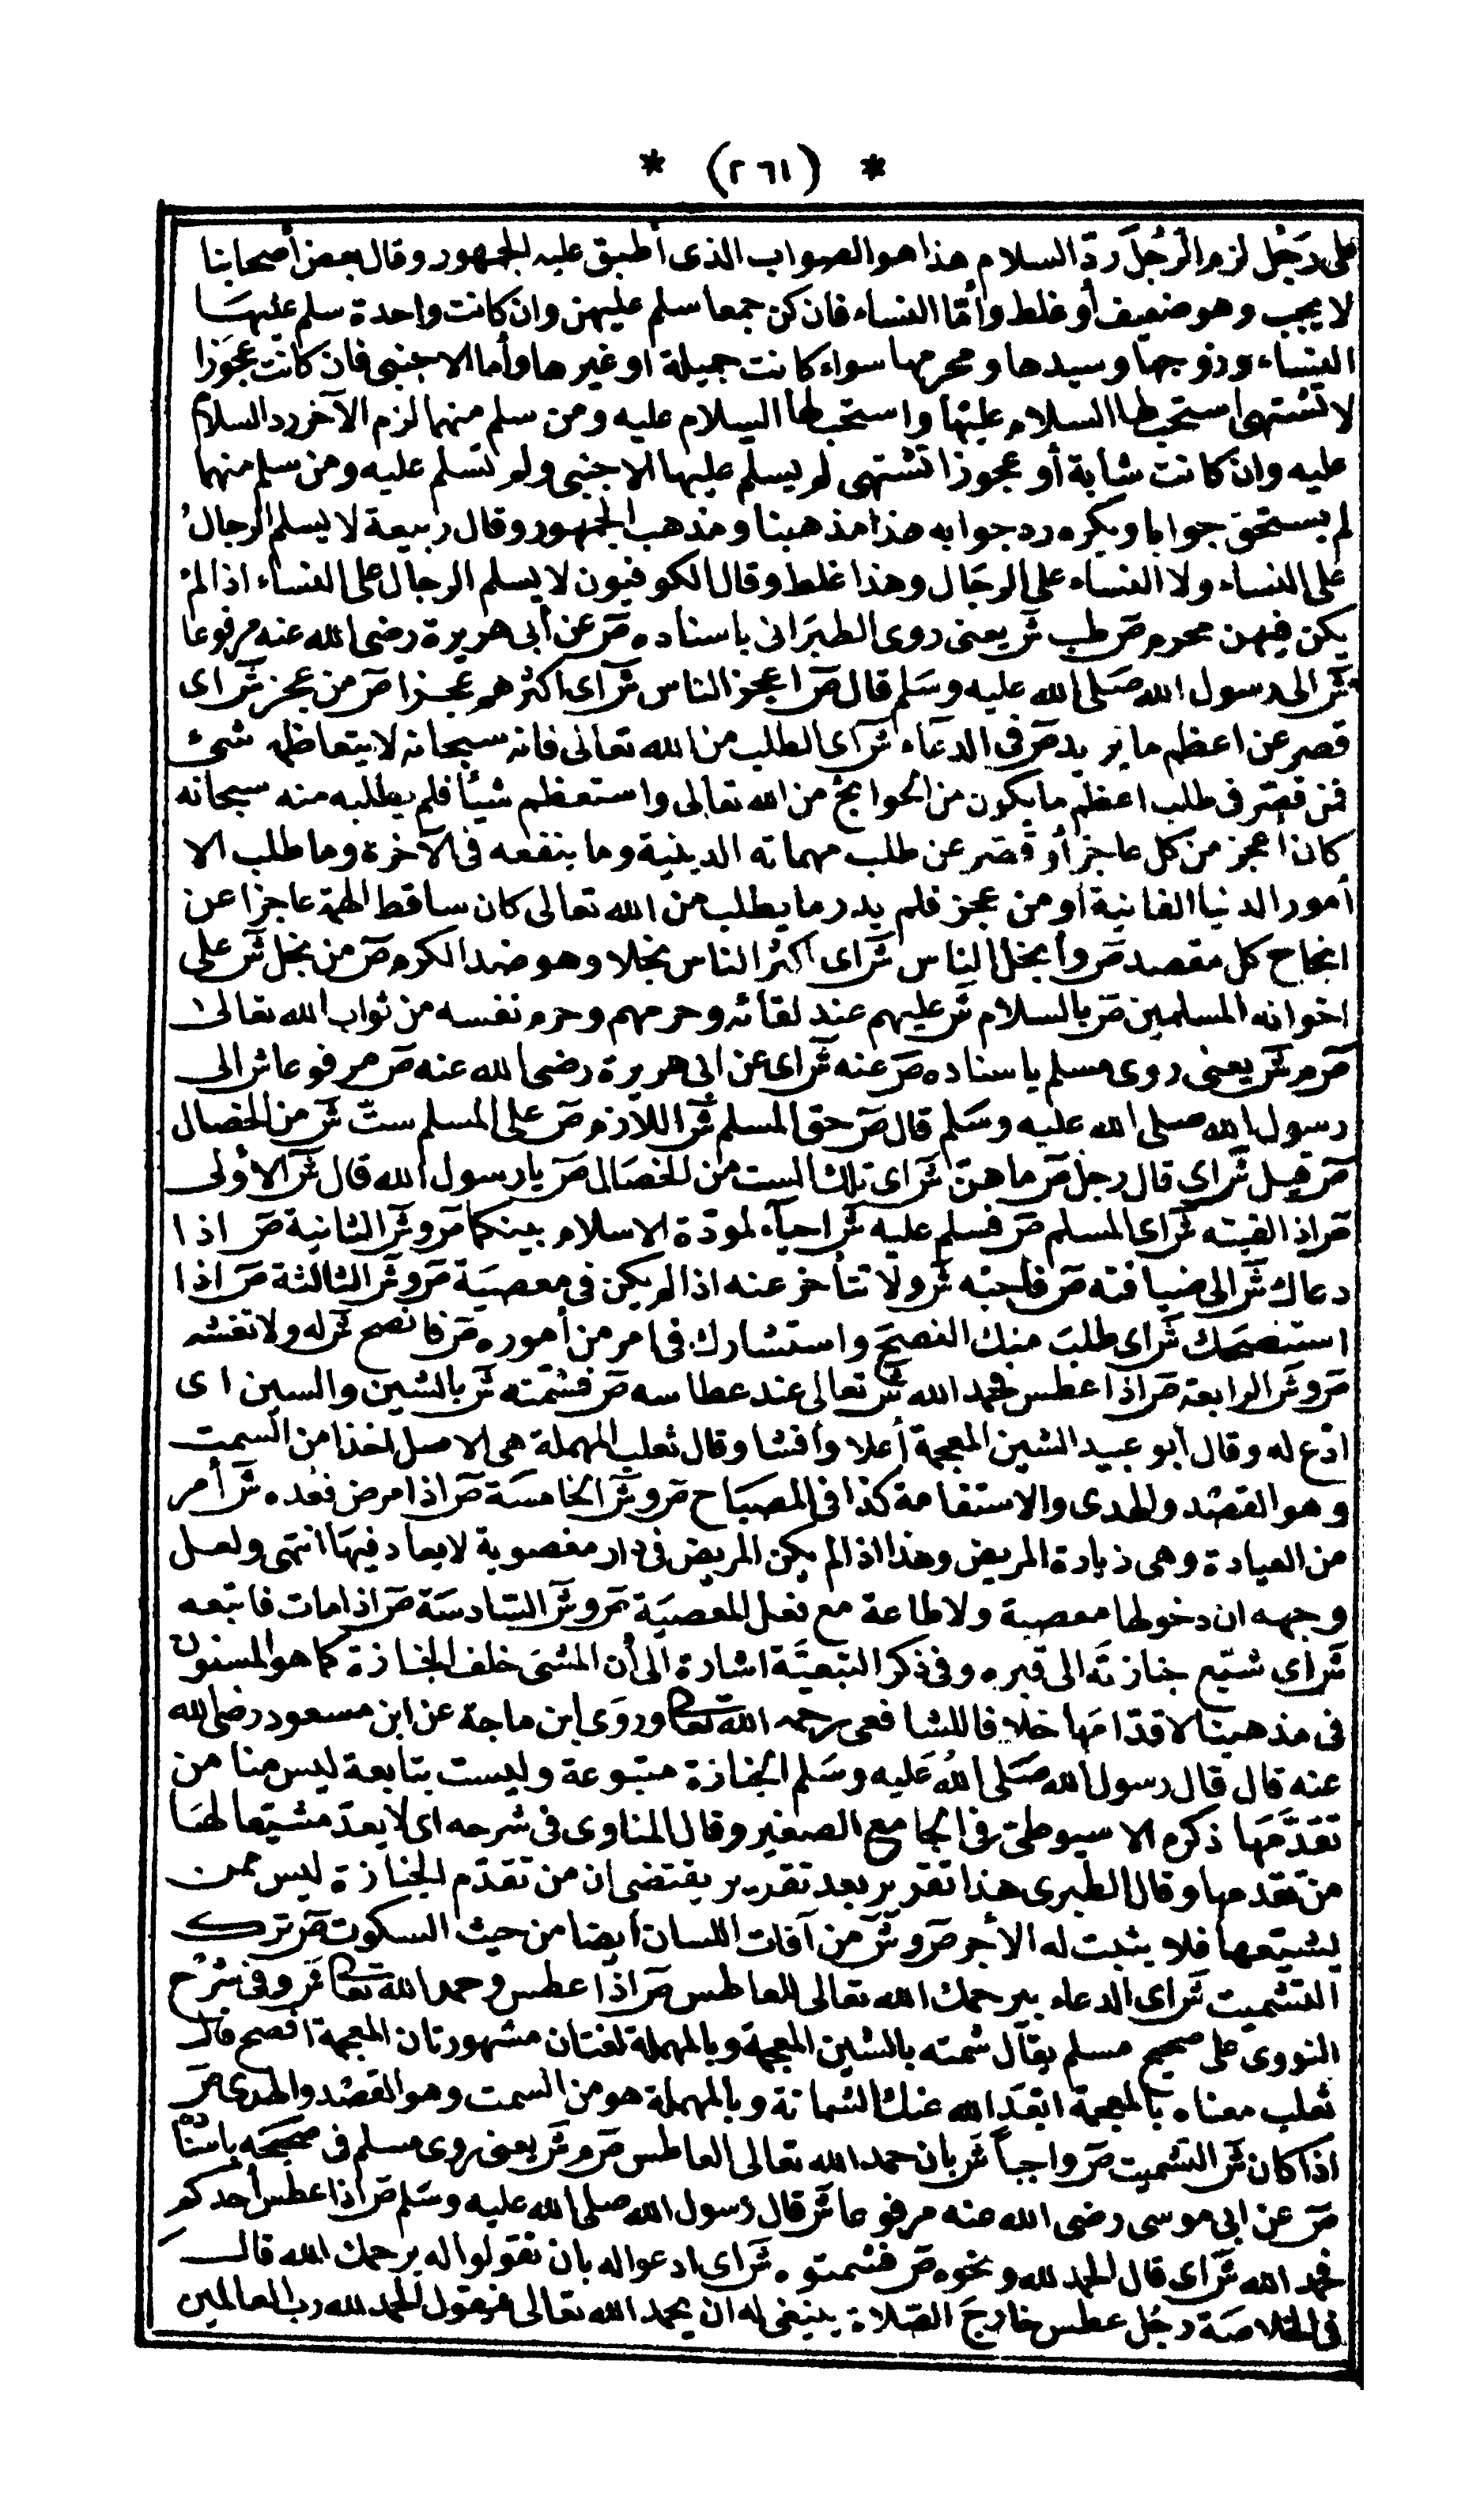 * (٢٦١) *
على رَجُل لزم الرَّجُلَ ردّ السلام هذا هو الصواب الذى أطبق عليه الجمهور وقال بعض أصحابنا
لا يجب وهو ضعيف أو غلط وأمّا النساء فان كن جمعا سلم عليهن وان كانت واحدة سلم عليهَا
النساء وزوجها وسيدها ومحرمها سواء كانت جميلة او غيرها وأما الاجنبى فان كانت عجوَزا
لا تشتهى استحب لها السلام عليهَا واستحب لها السلام عليه ومن سلم منهما لزم الآخر رد السلام
عليه وان كانت شابة أو عجوزا تشتهى لم يسلم عليها الاجنبى ولم تسلم عليه ومن سلم منهما
لم يستحق جوابا ويكره رد جوابه هذا مذهبنا ومذهب الجمهور وقال ربيعة لا يسلم الرجالُ
على النساء ولا النساء على الرجَال وهذا غلط وقال الكوفيون لا يسلم الرجال على النساء اذا لم
يكن فيهن محرم ص طب ش يعنى روى الطبرَانى باسناده ص عن أبى هريرة رضى الله عنه مرفوعا
ش الى رسول الله صَلى الله عليه وسَلم قال ص اعجز الناس ش أى اكثرهم عجزا ص من عجز ش اى
قصر عن اعظم ما يريد ص فى الدعَاء ش أى الطلب من الله تعالى فانه سبحانه لا يتعاظمه شئ
فمن قصّر فى طلب اعظم ما يكون من الحوائج من الله تعالى واستعظم شيئا فلم يطلبه منه سبحانه
كان أعجز من كل عاجز أو قصّر عن طلب مهماته الدينية وما ينفعه فى الآخرة وما طلب الا
أمور الدنيا الفانية أو من عجز فلم يدر ما يطلب من الله تعالى كان ساقط الهمة عاجزا عن
انجاح كل مقصد ص وأبخل الناس ش اى اكثر الناس بخلا وهو ضد الكرم ص من بخل ش على
اخوانه المسلمين ص بالسلام ش عليهم عند لقائه وحرمهم وحرم نفسه من ثواب الله تعالى
ص م ش يعنى روى مسلم باسناده ص عنه ش اى عن ابى هريرة رضى الله عنه ص مرفوعا ش الى
رسول الله صلى الله عليه وسَلم قال ص حق المسلم ش اللازم ص على المسلم ستّ ش من الخصال
ص قيل ش اى قال رجل ص ما هنّ ش اى تلك الست من الخصَال ص يا رسول الله قال ش الأولى
ص اذا لقيته ش اى المسلم ص فسلم عليه ش احياء لمودّة الاسلام بينكما ص و ش الثانية ص اذا
دعاك ش الى ضيافته ص فاجبه ش ولا تتأخر عنه اذا لم يكن فى معصيَة ص و ش الثالثة ص اذا
استنصحك ش اى طلبَ منك النصيحَ واستشارك فى امر من أموره ص فانصح ش له ولا تغشه
ص و ش الرابعة ص اذا عطس فحمد الله ش تعالى عند عطاسه ص فشمّته ش بالشين والسين اى
ادّع له وقال ابو عبيد الشين المعجمة أعلا وأفشا وقال ثعلب المهملة هى الاصل اخذا من السمت
وهو القصْد والهدى والاستقامة كذا فى المصبَاح ص و ش الخامسَة ص اذا مرض فعُده ش أمر
من العيادة وهى زيارة المريض وهذا اذا لم يكن المريض فى دار مغصوبة لا يعاد فيهَا انتهى ولعل
وجهه ان دخولها معصية ولا طاعة مع فعل المعصيَة ص و ش السَادسَة ص اذا مات فاتبعه
ش اى شيّع جنازته الى قبره وفى ذكر التبعيّة اشارة الى أن المشىَ خلف الجنازة كما هو المسنون
فى مذهبنا لا قدّامَها خلافا للشافعى رحمه الله تعالى وروَى ابن ماجة عن ابن مسعود رضى الله
عنه قال قال رسول الله صَلى اللهُ عَليه وسَلم الجنازة متبوعة وليست بتابعة ليس منا من
تقدّمَها ذكره الاسيوطى فى الجامع الصغير وقال المناوى فى شرحه اى لا يعدّ مشيّعا لهَا
من تقدمها وقال الطبرى هذا تقرير بعد تقرير يقتضى ان من تقدّم الجنازة ليس ممن
يشيّعها فلا يثبت له الأجر ص و ش من آفات اللسان أيضا من حيث السكوت ص ترك
التشميت ش اى الدعاء بيرحمك الله تعالى للعاطس ص اذا عطس وحمد الله تعالى ش وفى شرْح
النووى على صحيح مسلم يقال شمته بالشين المعجمة وبالمهملة لغتان مشهورتان المعجمة أفصح قال
ثعلب معناه بالمعجمة ابعَد الله عنك الشماتة وبالمهملة هو من السمت وهو القصْد والهدى ص
اذا كان ش التشميت ص واجباً ش بان حمد الله تعالى العاطس ص م ش يعنى روى مسلم فى صحيحَه باسناده
ص عن ابى موسى رضى الله عنه مرفوعا ش قال رسول الله صلى الله عليه وسَلم ص اذا عطس أحدكم
فحمد الله ش اى قال الحمد لله ونحوه ص فشمتوه ش اى ادعوا له بان تقولوا له يرحمك الله قال
فى الخلاصَة رجُل عطس خارجَ الصّلاة ينبغى له ان يحمد الله تعالى فيقول الحمد لله رب العالمين